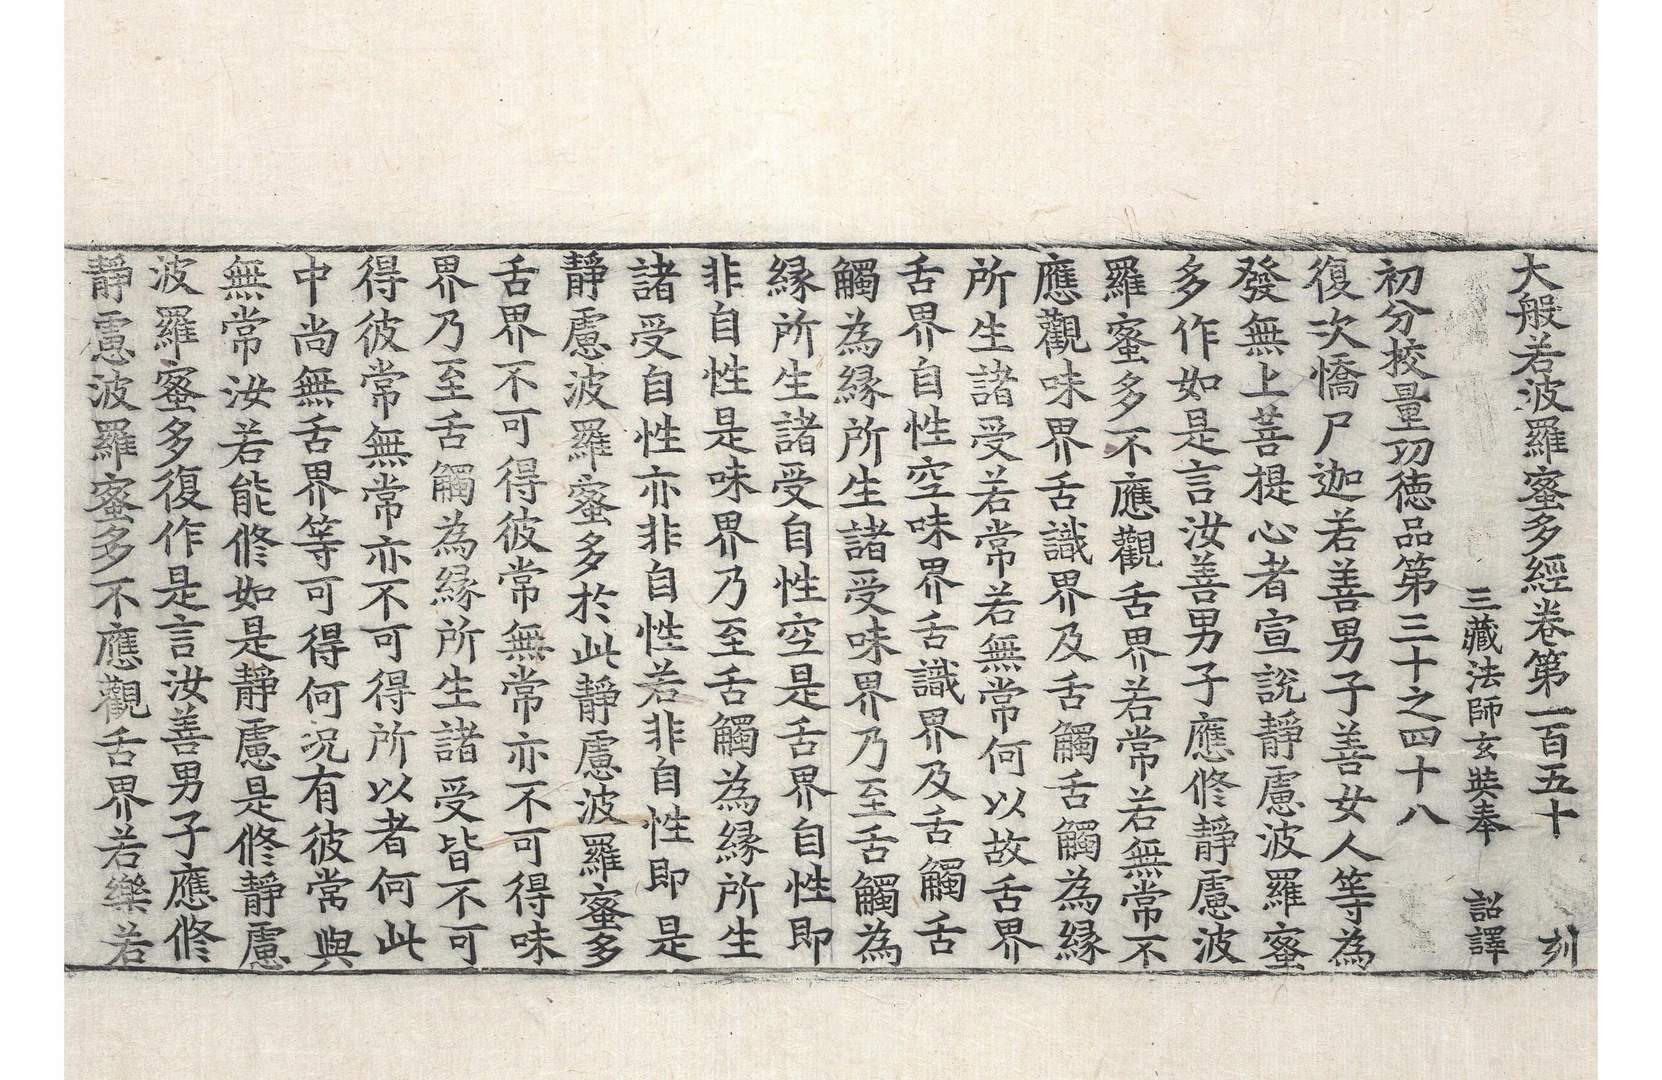 大般若波羅蜜多經卷第一百五十 列
三藏法師玄奘奉 詔譯
初分挍量功德品第三十之四十八
復次憍尸迦若善男子善女人等為
發無上菩提心者宣說靜慮波羅蜜
多作如是言汝善男子應修靜慮波
羅蜜多不應觀舌界若常若無常不
應觀味界舌識界及舌觸舌觸為緣
所生諸受若常若無常何以故舌界
舌界自性空味界舌識界及舌觸舌
觸為緣所生諸受味界乃至舌觸為
緣所生諸受自性空是舌界自性即
非自性是味界乃至舌觸為緣所生
諸受自性亦非自性若非自性即是
靜慮波羅蜜多於此靜慮波羅蜜多
舌界不可得彼常無常亦不可得味
界乃至舌觸為緣所生諸受皆不可
得彼常無常亦不可得所以者何此
中尚無舌界等可得何況有彼常與
無常汝若能修如是靜慮是修靜慮
波羅蜜多復作是言汝善男子應修
靜慮波羅蜜多不應觀舌界若樂若